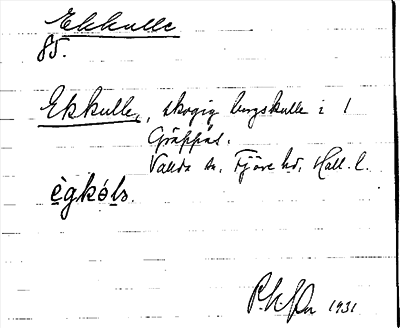 Ekkulle
85.
Ekkulle, skogig bergskulle i 1
Gräppås.
Vallda sn, Fjäre hd, Hall. l.
1931